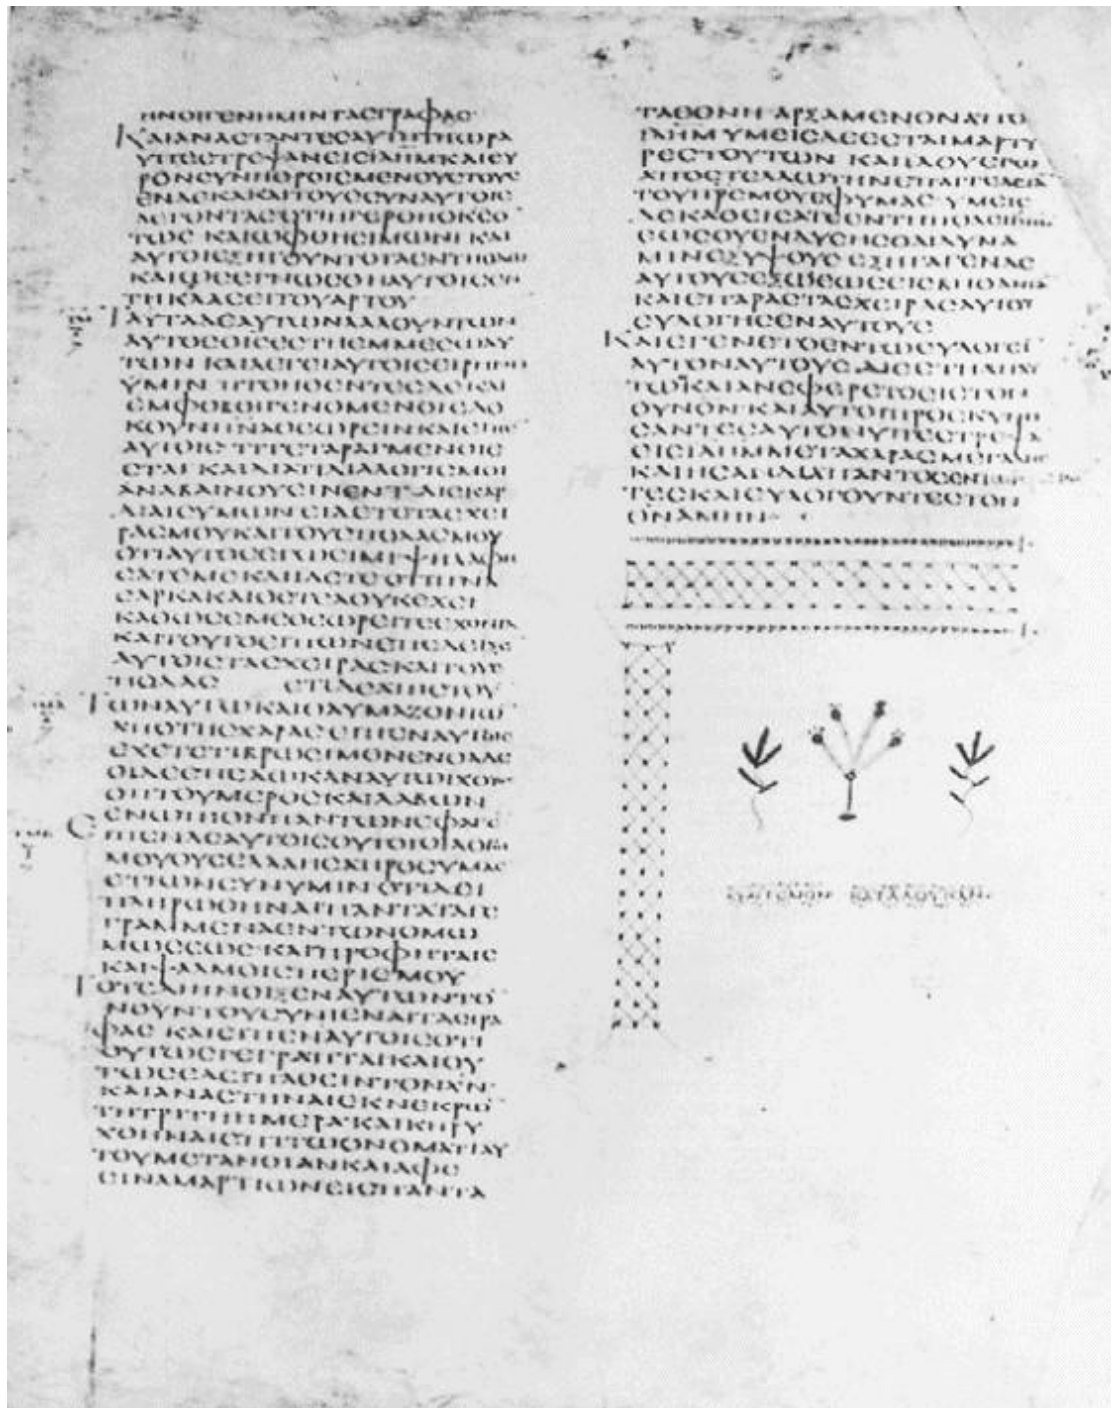 ΗΝΟΙΓΕΝΗΜΙΝΤΑΣΓΡΑΦΑΣ
ΚΑΙΑΝΑΣΤΑΝΤΕΣΑΥΤΗΤΗΩΡΑ
ΥΠΕΣΤΡΕΨΑΝΕΙΣΙΛΗΜΚΑΙΕΥ
ΡΟΝΣΥΝΗΘΡΟΙΣΜΕΝΟΥΣΤΟΥΣ
ΕΝΔΕΚΑΚΑΙΤΟΥΣΣΥΝΑΥΤΟΙΣ
ΛΕΓΟΝΤΑΣΟΤΙΗΓΕΡΘΗΟΚΣΟ
ΤΩΣ ΚΑΙΩΦΘΗΣΙΜΩΝΙ ΚΑΙ
ΑΥΤΟΙΕΞΗΓΟΥΝΤΟΤΑΕΝΤΗΟΔΩ
ΚΑΙΩΣΕΓΝΩΣΘΗΑΥΤΟΙΣΕΝ
ΤΗΚΛΑΣΕΙΤΟΥΑΡΤΟΥ
ΤΑΥΤΑΔΕΑΥΤΩΝΛΑΛΟΥΝΤΩΝ
ΑΥΤΟΣΟΙΣΕΣΤΗΕΜΜΕΣΩΑΥ
ΤΩΝ ΚΑΙΛΕΓΕΙΑΥΤΟΙΣΕΙΡΗΝΗ
ΥΜΙΝ ΠΤΟΗΘΕΝΤΕΣΔΕΚΑΙ
ΕΜΦΟΒΟΙΓΕΝΟΜΕΝΟΙΕΔΟ
ΚΟΥΝΠΝΑΘΕΩΡΕΙΝΚΑΙΕΙΠΕ
ΑΥΤΟΙΣ ΤΙΤΕΤΑΡΑΓΜΕΝΟΙΕ
ΣΤΑΙ ΚΑΙΔΙΑΤΙΔΙΑΛΟΓΙΣΜΟΙ
ΑΝΑΒΑΙΝΟΥΣΙΝΕΝΤΑΙΣΚΑΡ
ΔΙΑΙΣΥΜΩΝΕΙΔΕΤΕΤΑΣΧΕΙ
ΡΑΣΜΟΥΚΑΙΤΟΥΣΠΟΔΑΣΜΟΥ
ΟΤΙΑΥΤΟΣΕΓΩΕΙΜΙ ΨΗΛΑΦΗ
ΣΑΤΕΜΕΚΑΙΙΔΕΤΕΟΤΙΠΝΑ
ΣΑΡΚΑΚΑΙΟΣΤΕΑΟΥΚΕΧΕΙ
ΚΑΘΩΣΕΜΕΘΕΩΡΕΙΤΕΕΧΟΝΤΑ
ΚΑΙΤΟΥΤΟΕΙΠΩΝΕΠΕΔΕΙΞΕ
ΑΥΤΟΙΣΤΑΣΧΕΙΡΑΣΚΑΙΤΟΥΣ
ΠΟΔΑΣ ΕΤΙΔΕΑΠΙΣΤΟΥ
ΤΩΝΑΥΤΩΚΑΙΘΑΥΜΑΖΟΝΤΩ
ΑΠΟΤΗΣΧΑΡΑΣΕΙΠΕΝΑΥΤΟΙΣ
ΕΧΕΤΕΤΙΒΡΩΣΙΜΟΝΕΝΘΑΔΕ
ΟΙΔΕΕΠΕΔΩΚΑΝΑΥΤΩΙΧΘΥ
ΟΠΤΟΥΜΕΡΟΣΚΑΙΛΑΒΩΝ
ΕΝΩΠΙΟΝΠΑΝΤΩΝΕΦΑΓΕ
ΕΙΠΕΝΔΕΑΥΤΟΙΣΟΥΤΟΙΟΙΛΟΓΟΙ
ΜΟΥΟΥΣΕΛΑΛΗΣΑΠΡΟΣΥΜΑΣ
ΕΤΙΩΝΣΥΝΥΜΙΝ ΟΤΙΔΕΙ
ΠΛΗΡΩΘΗΝΑΙΠΑΝΤΑΤΑΓΕ
ΓΡΑΜΜΕΝΑΕΝΤΩΝΟΜΩ
ΜΩΣΕΩΣ ΚΑΙΠΡΟΦΗΤΑΙΣ
ΚΑΙΨΑΛΜΟΙΣΠΕΡΙΕΜΟΥ
ΤΟΤΕΔΙΗΝΟΙΞΕΝΑΥΤΩΝΤΟ
ΝΟΥΝΤΟΥΣΥΝΙΕΝΑΙΤΑΣΓΡΑ
ΦΑΣ ΚΑΙΕΙΠΕΝΑΥΤΟΙΣΟΤΙ
ΟΥΤΩΣΓΕΓΡΑΠΤΑΙΚΑΙΟΥ
ΤΩΣΕΔΕΙΠΑΘΕΙΝΤΟΝΧΝ
ΚΑΙΑΝΑΣΤΗΝΑΙΕΚΝΕΚΡΩ
ΤΗΤΡΙΤΗΗΜΕΡΑ ΚΑΙΚΗΡΥ
ΧΘΗΝΑΙΕΠΙΤΩΟΝΟΜΑΤΙΑΥ
ΤΟΥΜΕΤΑΝΟΙΑΝΚΑΙΑΦΕ
ΣΙΝΑΜΑΡΤΙΩΝΕΙΣΠΑΝΤΑ
ΤΑΕΘΝΗ ΑΡΞΑΜΕΝΟΝΑΠΟ
ΙΛΗΜ ΥΜΕΙΣΔΕΕΣΤΑΙΜΑΡΤΥ
ΡΕΣΤΟΥΤΩΝ ΚΑΙΙΔΟΥΕΓΩ
ΑΠΟΣΤΕΛΛΩΤΗΝΕΠΑΓΓΕΛΕΙΑ
ΤΟΥΠΡΣΜΟΥΕΦΥΜΑΣ ΥΜΕΙΣ
ΔΕΚΑΘΕΙΣΑΤΕΕΝΤΗΠΟΛΕΙΙΛΗΜ
ΕΩΣΟΥΕΝΔΥΣΗΣΘΑΙΔΥΝΑ
ΜΙΝΕΞΥΨΟΥΣ ΕΞΗΓΑΓΕΝΔΕ
ΑΥΤΟΥΣΕΞΩΕΩΣΕΙΣΒΗΘΑΝΙΑ
ΚΑΙΕΠΑΡΑΣΤΑΣΧΕΙΡΑΣΑΥΤΟΥ
ΕΥΛΟΓΗΣΕΝΑΥΤΟΥΣ
ΚΑΙΕΓΕΝΕΤΟΕΝΤΩΕΥΛΟΓΕΙ
ΑΥΤΟΝΑΥΤΟΥΣ ΔΙΕΣΤΗΑΠΑΥ
ΤΩΚΑΙΑΝΕΦΕΡΕΤΟΕΙΣΤΟΝ
ΟΥΝΟΝ ΚΑΙΑΥΤΟΙΠΡΟΣΚΥΝΗ
ΣΑΝΤΕΣΑΥΤΟΝΥΠΕΣΤΡΕΨΑ
ΕΙΣΙΛΗΜΜΕΤΑΧΑΡΑΣΜΕΓΑΛΗΣ
ΚΑΙΗΣΑΝΔΙΑΠΑΝΤΟΣΕΝΤΩΙΕΡΩ
ΤΕΣΚΑΙΕΥΛΟΓΟΥΝΤΕΣΤΟΝ
ΘΝΑΜΗΝ